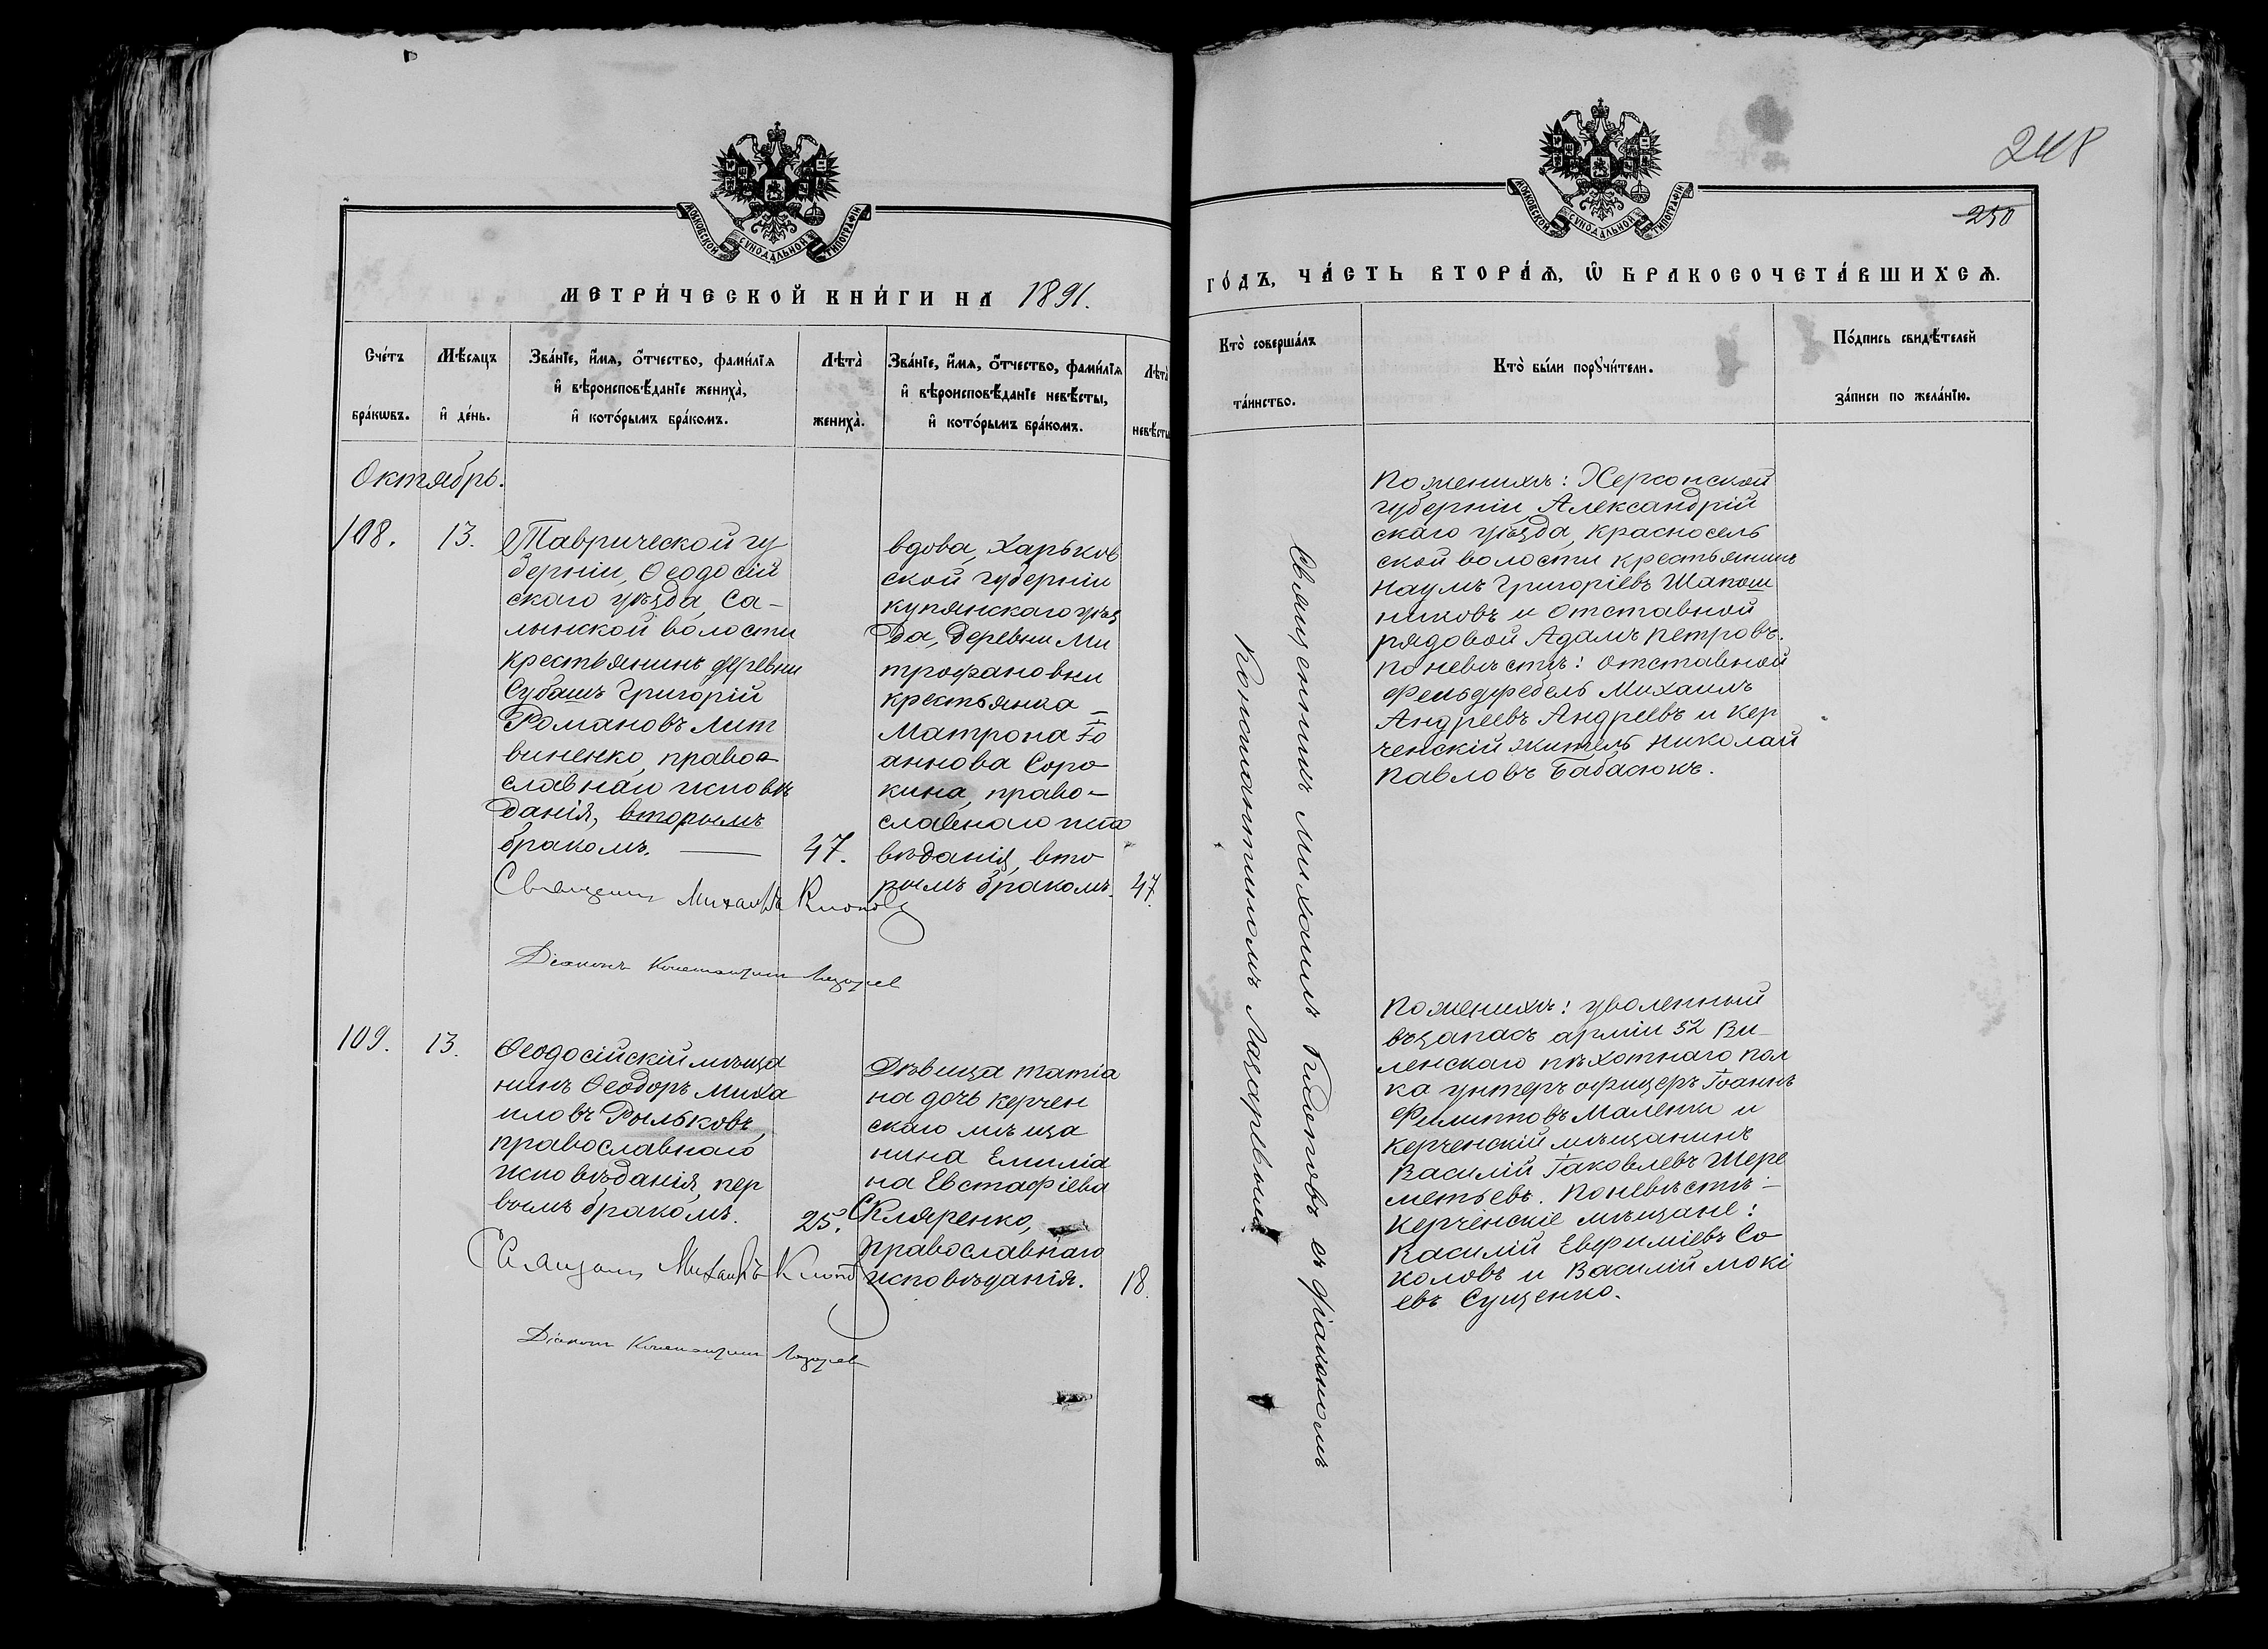 МОСКОВСКОЙ СУНОДАЛЬНОЙ ТИПОГРАФІИ
МЕТРИ́ЧЕСКОЙ КНИ́ГИ НА 1891.
Сче́тъ бра́кѡвъ.
Мѣ́сяцъ и҆ де́нь.
Зва́нїе, и҆́мя, ѻ҆́тчество, фами́лїя
и҆ вѣроисповѣ́данїе жениха̀,
и҆ кото́рымъ бра́комъ.
Лѣта̀ жениха̀.
Зва́нїе, и҆́мя, ѻ҆́тчество, фами́лїя
и҆ вѣроисповѣ́данїе невѣ́сты,
и҆ кото́рымъ бра́комъ.
Лѣта̀ невѣ́сты
Октябрь.
108.
13.
Таврической гу
берніи, Ѳеодосій
скаго уѣзда, Са-
лынской волости
крестьянинъ деревни
Субашъ Григорій
Романовъ Лит
виненко, право
славнаго исповѣ
данія, вторымъ
бракомъ.
47.
вдова, Харьков
ской губерніи
купянскаго уѣз
да, деревни Ми
трофановки
крестьянка
Матрона Іо
аннова Соро
кина, право-
славнаго испо
вѣданія, вто
рымъ бракомъ.
47.
Священникъ Михаилъ Клоповъ
Діаконъ Константинъ Лазарев
109.
13.
Ѳеодосійскій мѣща
нинъ Ѳеодоръ Миха
иловъ Рыльковъ,
православнаго
исповѣданія, пер
вымъ бракомъ.
25.
Дѣвица Татіа
на дочь керчен
скаго мѣща
нина Емиліа
на Евстафіева
Скляренко,
православнаго
исповѣданія.
18.
Священникъ Михаилъ Клопов
Діаконъ Константинъ Лазарев
248
250
МОСКОВСКОЙ СУНОДАЛЬНОЙ ТИПОГРАФІИ
ГО́ДЪ, ЧА́СТЬ ВТОРА́Ѧ, Ѽ БРАКОСОЧЕТА́ВШИХСѦ.
Кто̀ соверша́лъ
та́инство.
Кто̀ бы́ли порꙋчи́тели.
По́дпись свидѣ́телей
за́писи по жела́нїю.
Священникъ Михаилъ Клоповъ съ діакономъ
Константиномъ Лазаревымъ
По женихѣ: Херсонской
губерніи, Александрій
скаго уѣзда, Красносель
ской волости крестьянинъ
Наумъ Григоріевъ Шапош
никовъ и отставной
рядовой Адамъ Петровъ.
По невѣстѣ: отставной
фельдфебель Михаилъ
Андреевъ Андреевъ и кер
ченскій житель Николай
Павловъ Бабасюкъ.
По женихѣ: уволенный
въ запасъ арміи 52 Ви-
ленскаго пѣхотнаго пол
ка унтеръ офицеръ Іоаннъ
Филипповъ Маленки и
керченскій мѣщанинъ
Василій Іаковлевъ Шере
метьевъ. По невѣстѣ-
керченскіе мѣщане:
Василій Евфиміевъ Со
коловъ и Василій Мокі
евъ Сущенко.